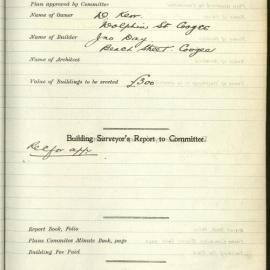 Plan approved by Committee
Name of Owner D Kerr
Dolphin St Coogee
Name of Builder Jno Day
Beach Street. Coogee
Name of Architect
Value of Buildings to be erected £300
Building Surveyor's Report to Committee.
Ref for app
Report Book, Folio
Plans Commitee Minute Book, page
Building Fee Paid